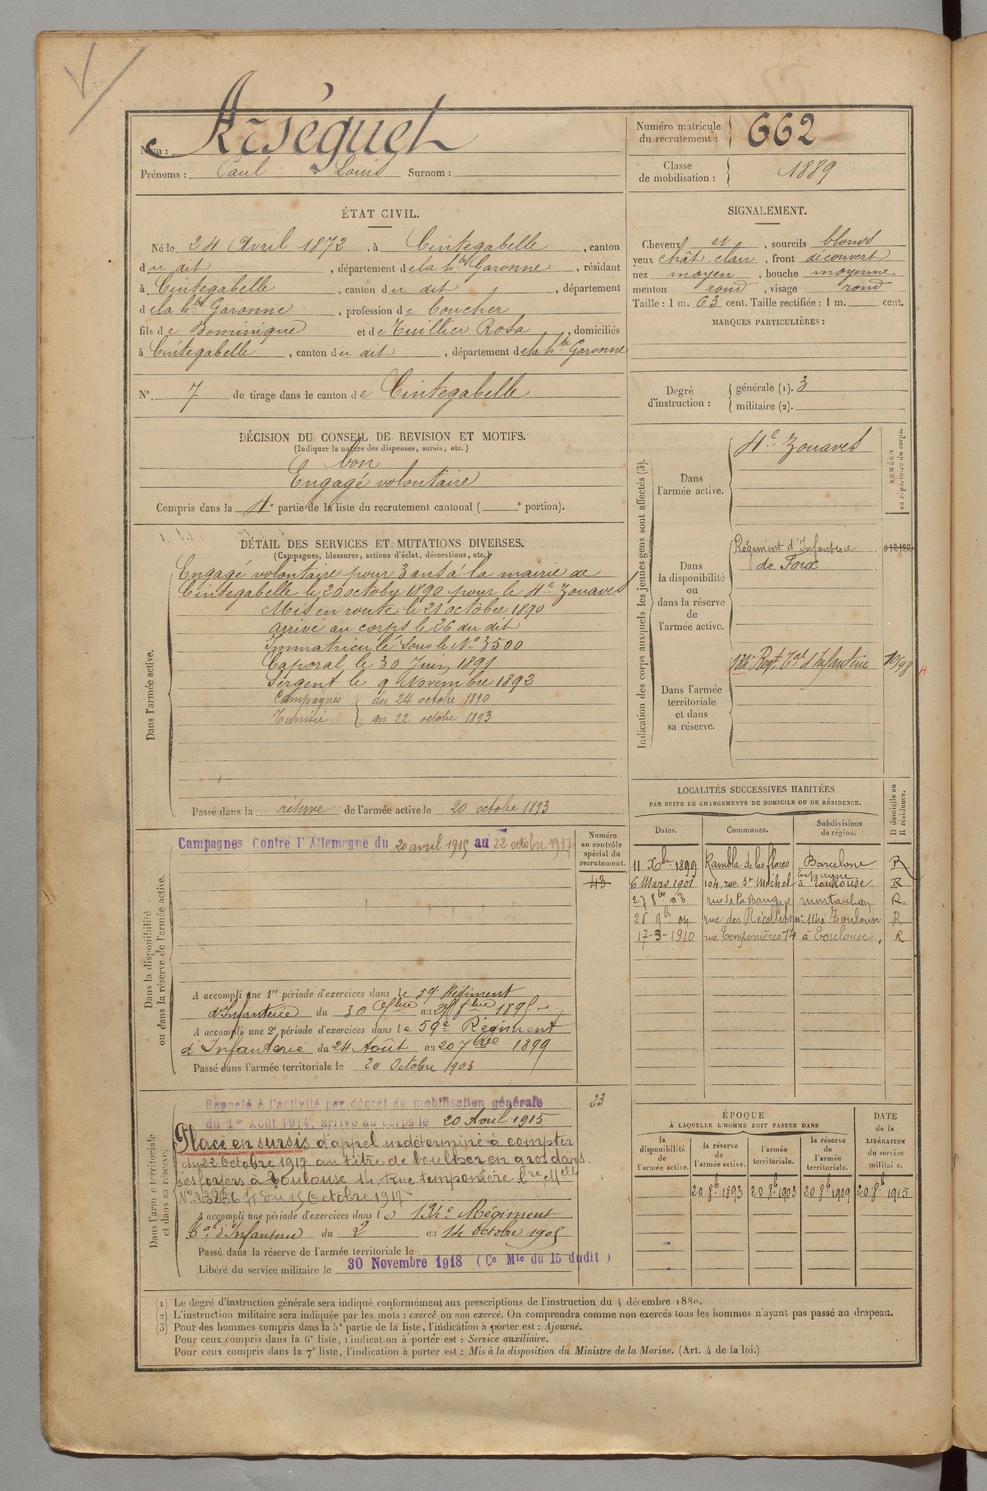 Nom : Arséguet
Prénoms : Paul Louis Surnom :
Numéro matricule du recrutement : 662
Classe de mobilisation : 1889
ÉTAT CIVIL.
Né le 24 Avril 1872, à Cintegabelle, canton
du dit, département de la hte Garonne, résidant
à Cintegabelle, canton du dit, département
de la hte Garonne, profession de
fils de Dominique et de Tuillier Rosa, domiciliés
à Cintegabelle, canton du dit, département de la hte Garonne
N° 7 de tirage dans le canton de Cintegabelle
SIGNALEMENT.
Cheveux et, sourcils blonds
yeux chât clair, front découvert
nez moyen, bouche moyenne
menton rond, visage rond
Taille : 1 m. 63 cent. Taille rectifiée : 1 m. cent.
MARQUES PARTICULIÈRES :
Degré d'instruction :
générale (1). 3
militaire (2).
DÉCISION DU CONSEIL DE REVISION ET MOTIFS.
(Indiquer la nature des dispenses, sursis, etc.)
bon
Engagé volontaire
Compris dans la 4e partie de la liste du recrutement cantonal ( e portion).
DÉTAIL DES SERVICES ET MUTATIONS DIVERSES.
(Campagnes, blessures, actions d'éclat, décorations, etc.)
Dans l'armée active.
Engagé volontaire pour 3 ans à la mairie de
Cintegabelle le 20 octobre 1890 pour le 4e Zouaves
Mis en route le 21 octobre 1890
arrivé au corps le 26 du dit
Immatriculé sous le No 3500
Caporal le 30 Juin 1891
Sergent le 9 Novembre 1892
Campagnes du 24 octobre 1890
Tunisie au 22 octobre 1893
Passé dans la réserve de l'armée active le 20 octobre 1893
Indication des corps auxquels les jeunes gens sont affectés (3).
NUMÉRO au répertoire du corps.
Dans l'armée active.
4e Zouaves
Dans la disponibilité ou dans la réserve de l'armée active.
Régiment d'Infanterie
de Foix
Dans l'armée territoriale et dans sa réserve.
134e Regt Tal d'Infanterie
LOCALITÉS SUCCESSIVES HABITÉES
PAR SUITE DE CHANGEMENTS DE DOMICILE OU DE RÉSIDENCE.
Dates. Communes. Subdivisions de région. D domicile ou R résidence.
11 Xbre 1899 Rambla de las flores Barcelone Espagne R
6 Mars 1901 104 rue St Michel à Toulouse R
27 8bre 03 rue de la Banque montauban R
26 9bre 04 rue des Récollets no 114a Toulouse R
17-3-1910 rue Temponières 14 à Toulouse. R
Dans la disponibilité ou dans la réserve de l'armée active.
Campagnes Contre l'Allemagne du 20 avril 1915 au 22 octobre 1917
Numéro au contrôle spécial du recrutement.
43
A accompli une 1re période d'exercices dans le 59e Régiment
d'Infanterie du 30 au 1895
A accompli une 2e période d'exercices dans le 59e Régiment
d'Infanterie du 24 Août au 20 7bre 1899
Passé dans l'armée territoriale le 20 Octobre 1903
Dans l'armée territoriale et dans sa réserve.
Rappelé à l'activité par décret de mobilisation générale
du 1er Août 1914, arrivé au corps le 20 Avril 1915
23
Placé en sursis d'appel indéterminé à compter
du 22 Octobre 1917 au titre de boulanger en gros dans
ses foyers à Toulouse 14, rue temponière
du 15 Octobre 1917
A accompli une période d'exercices dans le 134e Régiment
Tal d'Infanterie du 2 au 14 Octobre 1905
Passé dans la réserve de l'armée territoriale le
Libéré du service militaire le 30 Novembre 1918 (Ce Mle du 15 dudit)
ÉPOQUE
A LAQUELLE L'HOMME DOIT PASSER DANS
la disponibilité de l'armée active. la réserve de l'armée active. l'armée territoriale. la réserve de l'armée territoriale.
DATE de la LIBÉRATION du service militaire.
20 8bre 1893 20 8bre 1903 20 8bre 1909 20 8bre 1915
(1) Le degré d'instruction générale sera indiqué conformément aux prescriptions de l'instruction du 4 décembre 1889.
(2) L'instruction militaire sera indiquée par les mots : exercé ou non exercé. On comprendra comme non exercés tous les hommes n'ayant pas passé au drapeau.
(3) Pour des hommes compris dans la 5e partie de la liste, l'indication à porter est : Ajourné.
Pour ceux compris dans la 6e liste, l'indication à porter est : Service auxiliaire.
Pour ceux compris dans la 7e liste, l'indication à porter est : Mis à la disposition du Ministre de la Marine. (Art. 4 de la loi.)